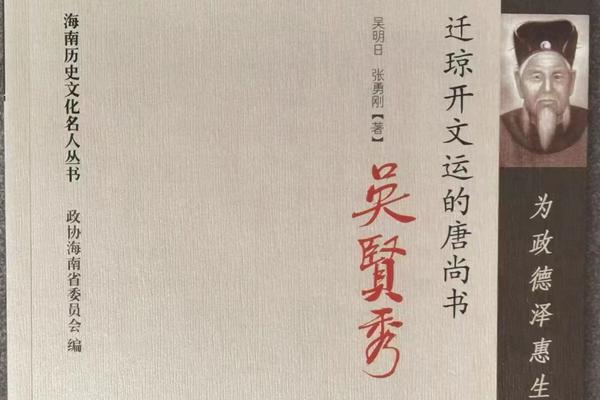 为政德泽惠生
迁琼开文运的唐尚书
吴賢秀
吴明日 张勇刚【著】
海南历史文化名人丛书
政协海南省委员会 编